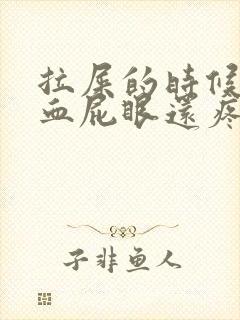 拉屎的時候
血屁眼還疼
子非鱼人